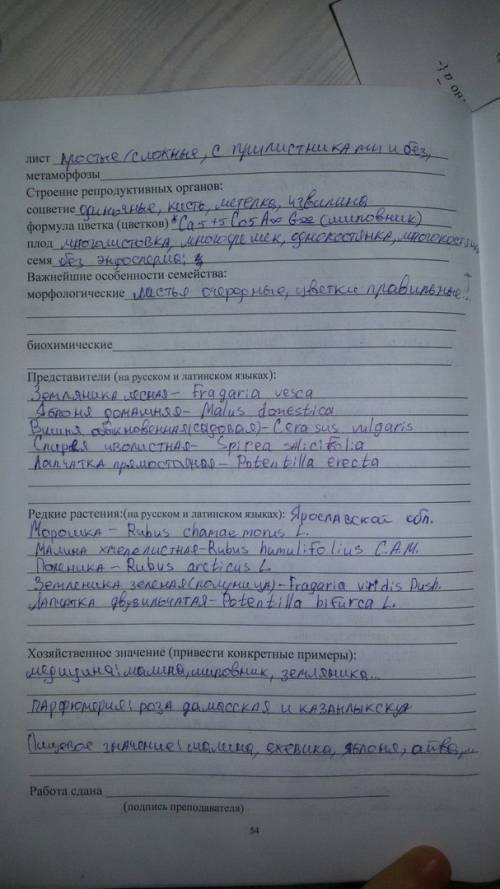 лист простые/сложные, с прилистниками и без,
метаморфозы
Строение репродуктивных органов:
соцветие одиночные, кисть, метелка, извилина
формула цветка (цветков) *Ca5+5 Co5 A∞ G∞ (шиповник)
плод многолистовка, многоорешек, однокостянка, многокостянка
семя без эндосперма;
Важнейшие особенности семейства:
морфологические листья очередные, цветки правильные
биохимические
Представители (на русском и латинском языках):
Земляника лесная - Fragaria vesca
Яблоня домашняя - Malus domestica
Вишня обыкновенная (садовая) - Cerasus vulgaris
Спирея иволистная - Spirea salicifolia
Лапчатка прямостоячая - Potentilla erecta
Редкие растения:(на русском и латинском языках): Ярославской обл.
Морошка - Rubus chamaemorus L.
Малина хмелелистная - Rubus humulifolius C.A.M.
Поленика - Rubus arcticus L.
Земленика зеленая (полуница) - Fragaria viridis Dush.
Лапчатка двувильчатая - Potentilla bifurca L.
Хозяйственное значение (привести конкретные примеры):
медицина: малина, шиповник, земляника...
Парфюмерия: роза дамасская и казанлыкская
Пищевое значение: малина, ежевика, яблоня, айва,
Работа сдана
(подпись преподавателя)
54